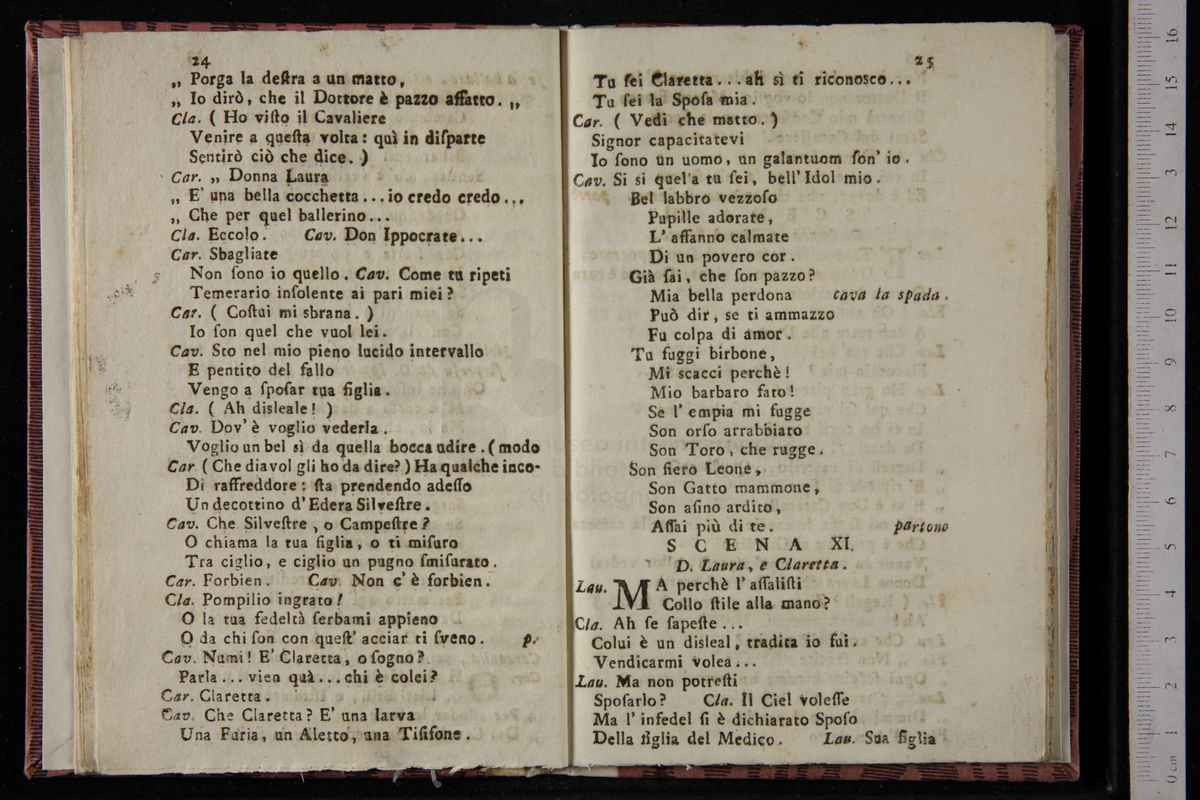 24
„ Porga la deſtra a un matto,
„ Io dirò, che il Dottore è pazzo affatto. „
Cla. ( Ho viſto il Cavaliere
Venire a queſta volta: quì in diſparte
Sentirò ciò che dice. )
Car. „ Donna Laura
„ E' una bella cocchetta...io credo credo...
„ Che per quel ballerino...
Cla. Eccolo. Cav. Don Ippocrate...
Car. Sbagliate
Non ſono io quello. Cav. Come tu ripeti
Temerario inſolente ai pari miei?
Car. ( Coſtui mi sbrana. )
Io ſon quel che vuol lei.
Cav. Sto nel mio pieno lucido intervallo
E pentito del fallo
Vengo a ſpoſar tua figlia.
Cla. ( Ah disleale! )
Cav. Dov' è voglio vederla.
Voglio un bel sì da quella bocca udire. ( modo
Car ( Che diavol gli ho da dire? ) Ha qualche inco-
Di raffreddore: ſta prendendo adeſſo
Un decottino d'Edera Silveſtre.
Cav. Che Silveſtre, o Campeſtre?
O chiama la tua figlia, o ti miſuro
Tra ciglio, e ciglio un pugno ſmiſurato.
Car. Forbien. Cav. Non c' è forbien.
Cla. Pompilio ingrato!
O la tua fedeltà ſerbami appieno
O da chi ſon con queſt' acciar ti ſveno. p.
Cav. Numi! E' Claretta, o ſogno?
Parla...vien quà...chi è colei?
Car. Claretta.
Cav. Che Claretta? E' una larva
Una Furia, un Aletto, una Tiſifone.
25
Tu ſei Claretta...ah sì ti riconosco...
Tu ſei la Spoſa mia.
Car. ( Vedi che matto. )
Signor capacitatevi
Io ſono un uomo, un galantuom ſon' io.
Cav. Si si quel'a tu ſei, bell' Idol mio.
Bel labbro vezzoſo
Pupille adorate,
L' affanno calmate
Di un povero cor.
Già ſai, che ſon pazzo?
Mia bella perdona cava la spada.
Può dir, se ti ammazzo
Fu colpa di amor.
Tu fuggi birbone,
Mi scacci perchè!
Mio barbaro fato!
Se l' empia mi fugge
Son orſo arrabbiato
Son Toro, che rugge.
Son fiero Leone,
Son Gatto mammone,
Son aſino ardito,
Aſſai più di te. partono
SCENA XI.
D. Laura, e Claretta.
Lau. MA perchè l' aſſaliſti
Collo ſtile alla mano?
Cla. Ah ſe ſapeſte...
Colui è un disleal, tradita io fui.
Vendicarmi volea...
Lau. Ma non potreſti
Spoſarlo? Cla. Il Ciel voleſſe
Ma l' infedel ſi è dichiarato Spoſo
Della figlia del Medico. Lau. Sua figlia
0 cm 1 2 3 4 5 6 7 8 9 10 11 12 13 14 15 16